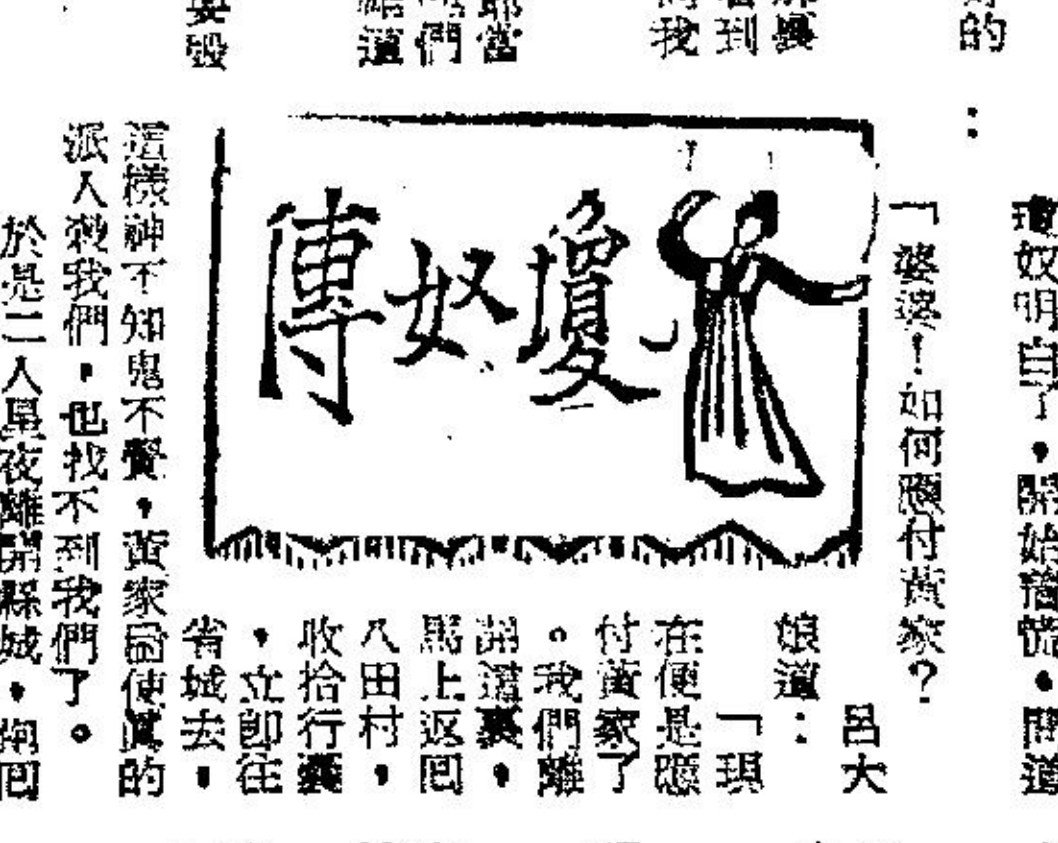 的：
裏
到
我
當
們
道
要毀
瓊奴明白了，開始著慌。問道
「婆婆！如何應付黃家？
瓊奴傳
呂大
娘道：
「現
在便是應
付黃家了
。我們離
開這裏，
馬上返回
八田村，
收拾行囊
，立即往
省城去，
這樣神不知鬼不覺，黃家即使真的
派人殺我們，也找不到我們了。
於是二人星夜離開縣城，回